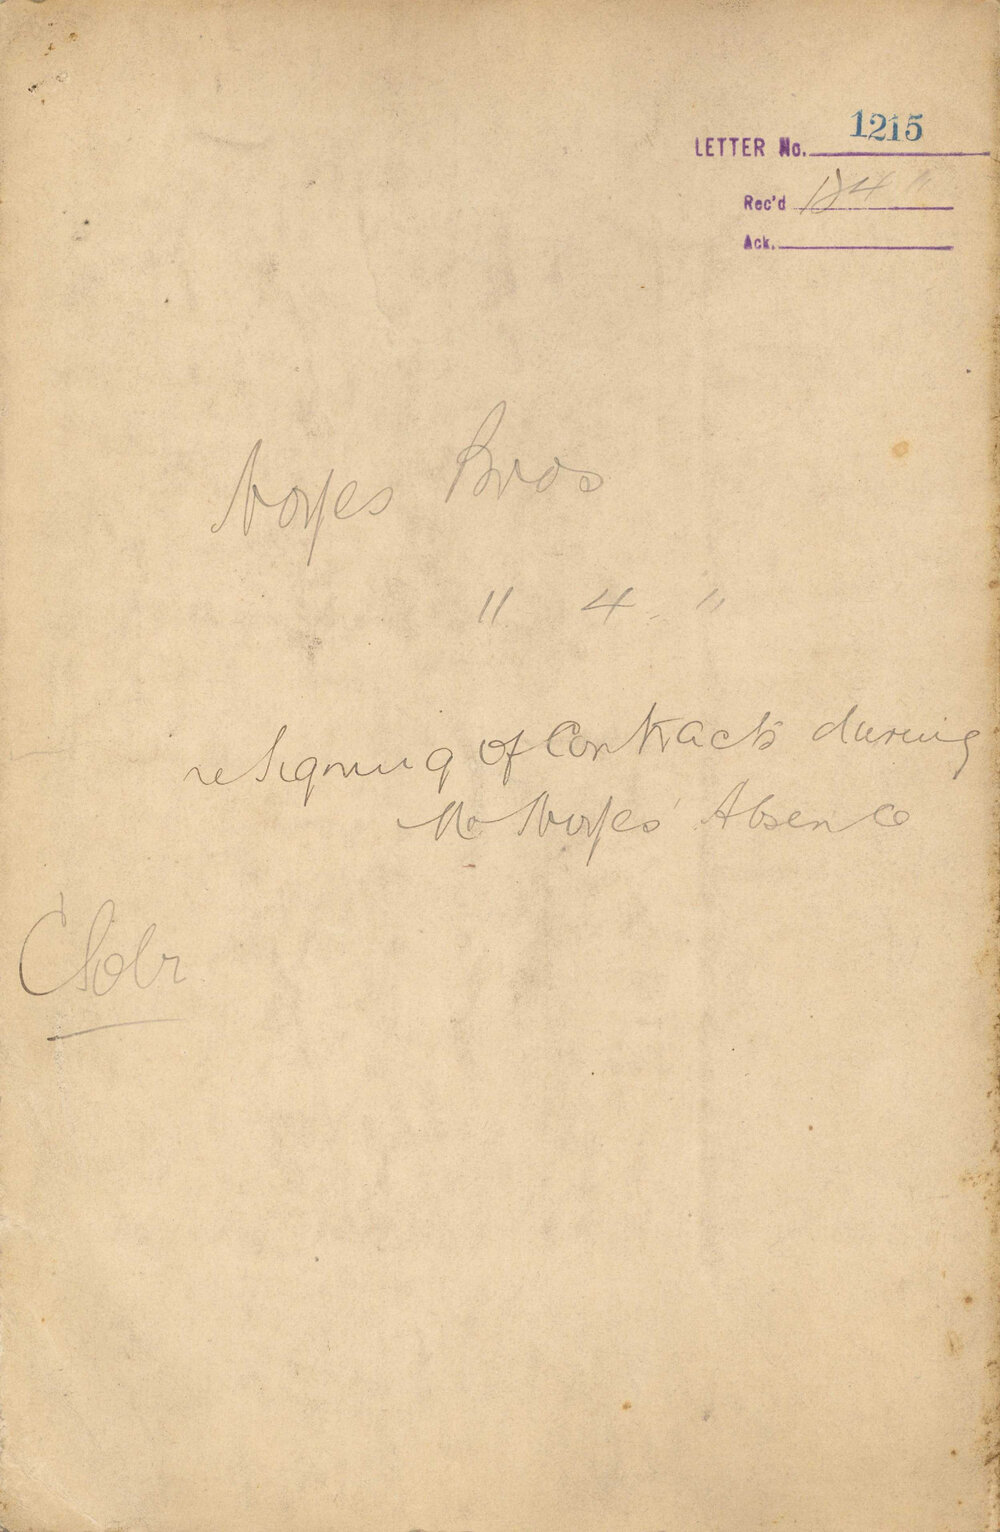 LETTER No. 1215
Rec'd 12 4 "
Ack.
Noyes Bros
11 4 "
re Signing of Contracts during
Mr Noyes' Absence